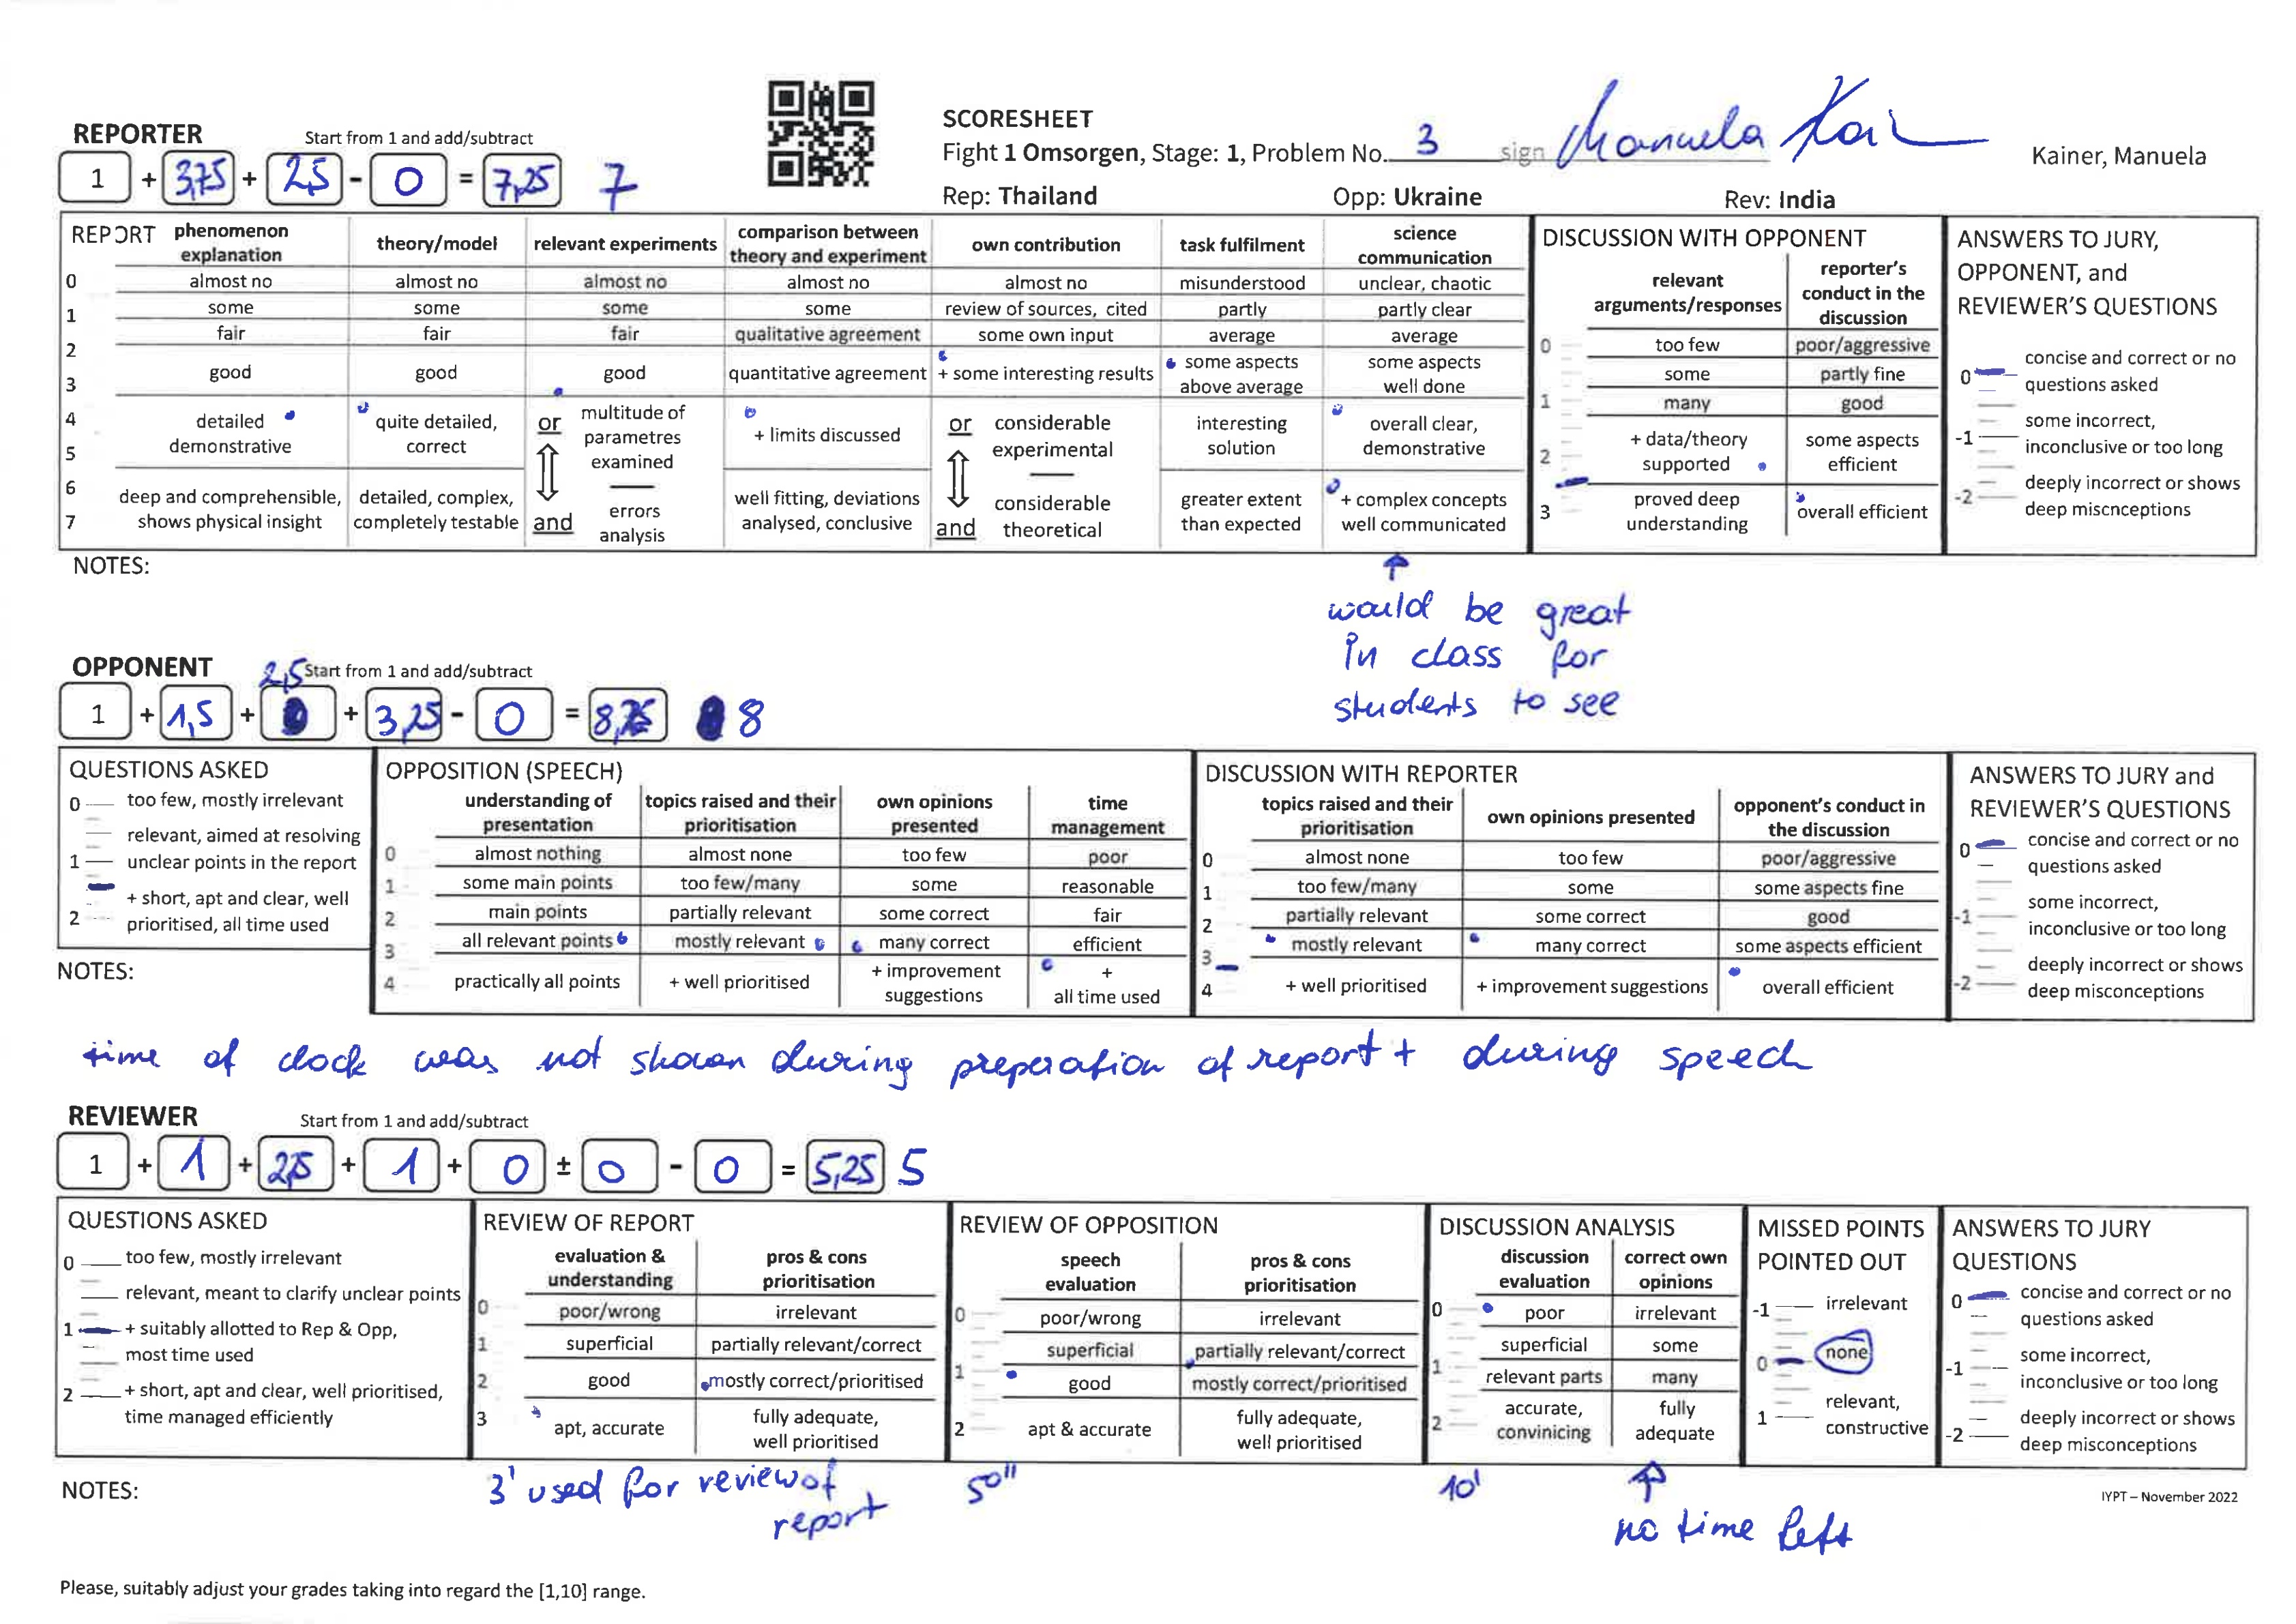 SCORESHEET
Fight 1 Omsorgen, Stage: 1, Problem No. 3 sign Manuela Kainer, Manuela
Rep: Thailand Opp: Ukraine Rev: India
REPORTER Start from 1 and add/subtract
1 + 3,75 + 2,5 - 0 = 7,25 7
REPORT
phenomenon explanation
theory/model
relevant experiments
comparison between theory and experiment
own contribution
task fulfilment
science communication
0 almost no almost no almost no almost no almost no misunderstood unclear, chaotic
1 some some some some review of sources, cited partly partly clear
2 fair fair fair qualitative agreement some own input average average
3 good good good quantitative agreement + some interesting results some aspects above average some aspects well done
4
5
detailed demonstrative
quite detailed, correct
or multitude of parametres examined
+ limits discussed
or considerable experimental
interesting solution
overall clear, demonstrative
6
7
deep and comprehensible, shows physical insight
detailed, complex, completely testable
and errors analysis
well fitting, deviations analysed, conclusive
and considerable theoretical
greater extent than expected
+ complex concepts well communicated
DISCUSSION WITH OPPONENT
relevant arguments/responses
reporter's conduct in the discussion
0 too few poor/aggressive
some partly fine
1 many good
2 + data/theory supported some aspects efficient
3 proved deep understanding overall efficient
ANSWERS TO JURY, OPPONENT, and REVIEWER'S QUESTIONS
0 concise and correct or no questions asked
-1 some incorrect, inconclusive or too long
-2 deeply incorrect or shows deep miscnceptions
NOTES:
would be great
in class for
students to see
OPPONENT 2,5 Start from 1 and add/subtract
1 + 1,5 + + 3,25 - 0 = 8,25 8
QUESTIONS ASKED
0 too few, mostly irrelevant
relevant, aimed at resolving
1 unclear points in the report
+ short, apt and clear, well
2 prioritised, all time used
OPPOSITION (SPEECH)
understanding of presentation
topics raised and their prioritisation
own opinions presented
time management
0 almost nothing almost none too few poor
1 some main points too few/many some reasonable
2 main points partially relevant some correct fair
3 all relevant points mostly relevant many correct efficient
4 practically all points + well prioritised + improvement suggestions + all time used
DISCUSSION WITH REPORTER
topics raised and their prioritisation
own opinions presented
opponent's conduct in the discussion
0 almost none too few poor/aggressive
1 too few/many some some aspects fine
2 partially relevant some correct good
3 mostly relevant many correct some aspects efficient
4 + well prioritised + improvement suggestions overall efficient
ANSWERS TO JURY and REVIEWER'S QUESTIONS
0 concise and correct or no questions asked
-1 some incorrect, inconclusive or too long
-2 deeply incorrect or shows deep misconceptions
NOTES:
time of clock was not shown during preperation of report + during speech
REVIEWER Start from 1 and add/subtract
1 + 1 + 2,5 + 1 + 0 ± 0 - 0 = 5,25 5
QUESTIONS ASKED
0 too few, mostly irrelevant
relevant, meant to clarify unclear points
1 + suitably allotted to Rep & Opp,
most time used
2 + short, apt and clear, well prioritised,
time managed efficiently
REVIEW OF REPORT
evaluation & understanding
pros & cons prioritisation
0 poor/wrong irrelevant
1 superficial partially relevant/correct
2 good mostly correct/prioritised
3 apt, accurate fully adequate, well prioritised
REVIEW OF OPPOSITION
speech evaluation
pros & cons prioritisation
0 poor/wrong irrelevant
superficial partially relevant/correct
1 good mostly correct/prioritised
2 apt & accurate fully adequate, well prioritised
DISCUSSION ANALYSIS
discussion evaluation
correct own opinions
0 poor irrelevant
superficial some
1 relevant parts many
2 accurate, convinicing fully adequate
MISSED POINTS POINTED OUT
-1 irrelevant
0 none
1 relevant, constructive
ANSWERS TO JURY QUESTIONS
0 concise and correct or no questions asked
-1 some incorrect, inconclusive or too long
-2 deeply incorrect or shows deep misconceptions
NOTES:
3' used for review of
report
50"
10'
no time left
IYPT – November 2022
Please, suitably adjust your grades taking into regard the [1,10] range.